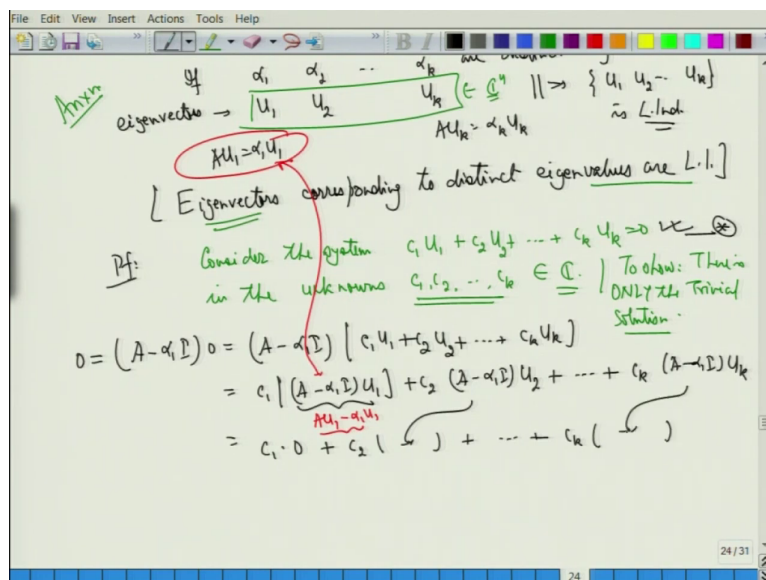 File Edit View Insert Actions Tools Help
If α₁ α₂ ... αₖ are
Anxn
eigenvectors → U₁ U₂ Uₖ ∈ ℂⁿ || ⇒ { U₁ U₂ -- Uₖ }
is L.Ind.
AUₖ = αₖUₖ
AU₁ = α₁U₁
[ Eigenvectors corresponding to distinct eigenvalues are L.I. ]
Pf: Consider the system c₁U₁ + c₂U₂ + ... + cₖUₖ = 0 ← *
in the unknowns c₁, c₂, ..., cₖ ∈ ℂ. | To show: There is
ONLY the Trivial
Solution.
0 = (A - α₁I) 0 = (A - α₁I) [ c₁U₁ + c₂U₂ + ... + cₖUₖ ]
= c₁ [(A - α₁I) U₁] + c₂ (A - α₁I) U₂ + ... + cₖ (A - α₁I) Uₖ
AU₁ - α₁U₁
= c₁ · 0 + c₂ ( ) + ... + cₖ ( )
24 / 31
24